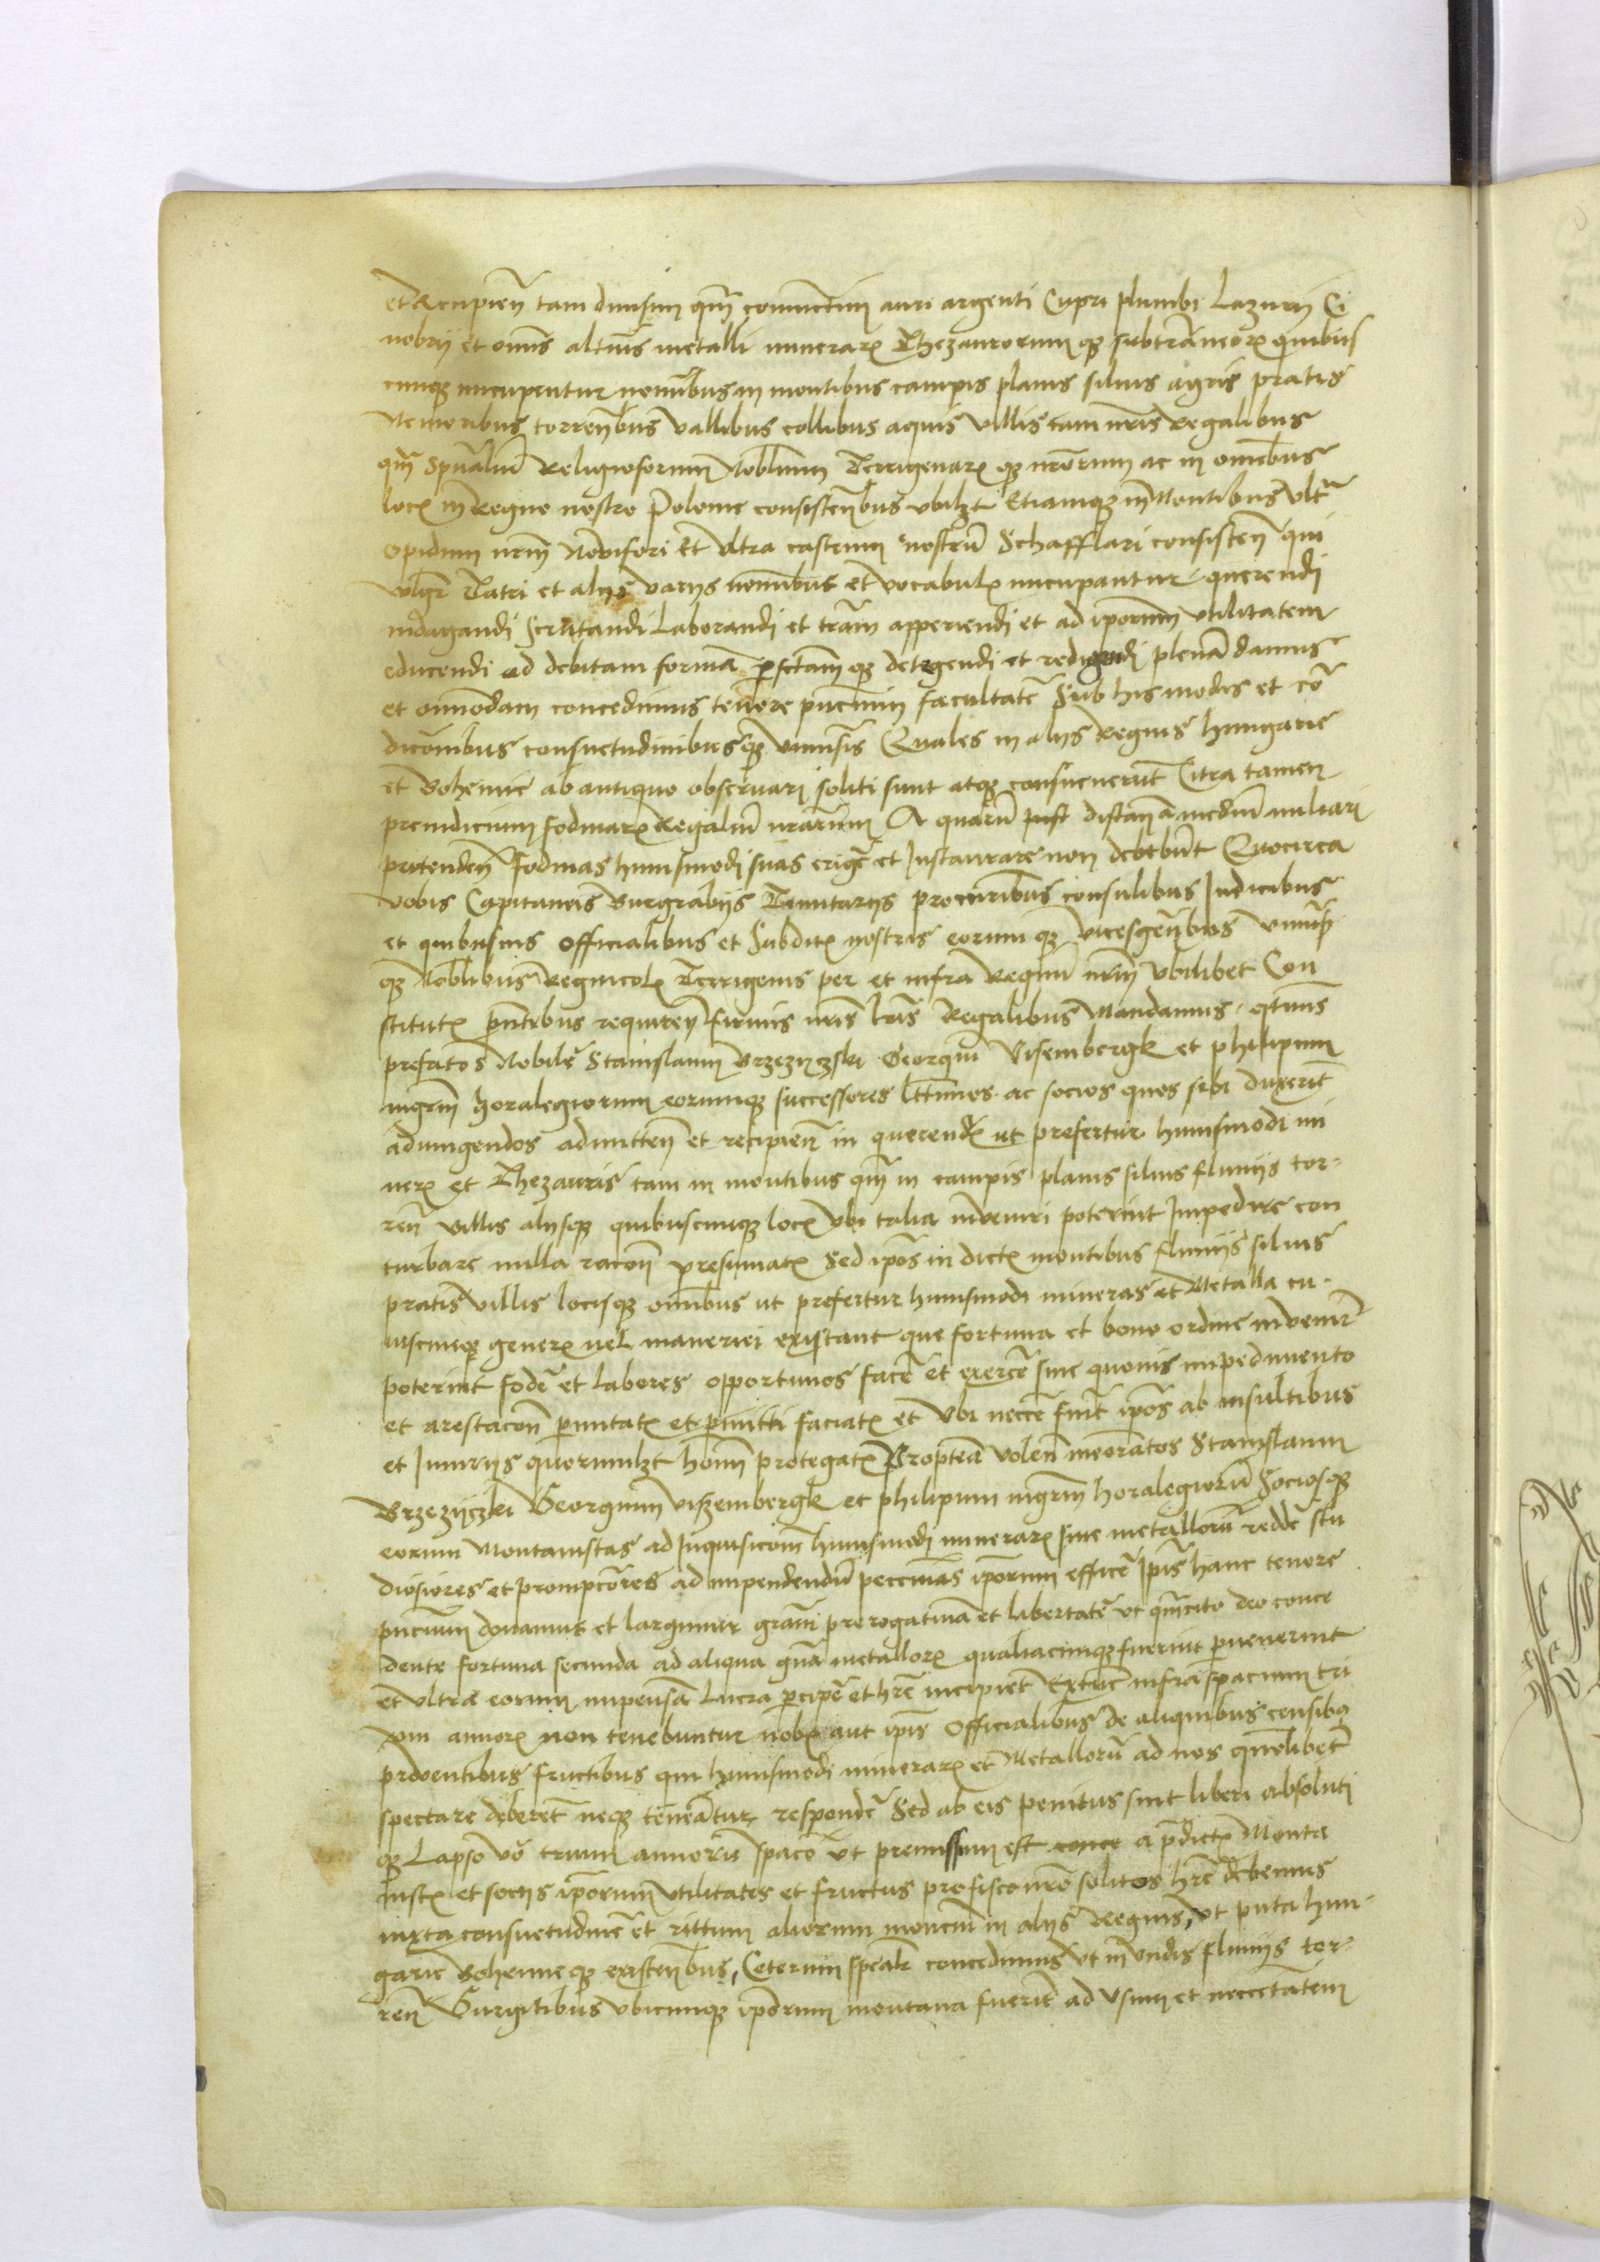 et Recipien̄ tam diuisim qm̄ coniunctim auri argenti Cupri plumbi Lazurij Ci
nobrij et om̄is alteri̅s metalli minerarꝝ Thezaurorum qꝫ subtra̅neorꝝ quibus
cunqꝫ nuncupentur nomi̅bus in montibus campis planis siluis agris pratis
Nemoribus torren̄bus vallibus collibus aquis villis tam nr̄is Regalibus
qm̄ Spūaliū Religiosorum Nobilium Terrigenarꝝ qꝫ nr̄orum ac in omībus
locꝝ in Regno nostro Polonie consistenībus vbilꝫt Etiamqꝫ in Montibus vltr̄
opidum nr̄m Nouifori Et vltra castrum nostrū Schafflari consisten̄ qui
vlgr̄ Tatri et alijs varijs nomībus et vocabulꝝ nuncupantur querendi
indagandi Scrutandi Laborandi et trām apperiendi et ad ip̄orum vtilitatem
educendi ad debitam formā ꝑfctam qꝫ detegendi et redigendi plenā damus
et om̄imodam concedimus tenore pn̄cium facultatē Sub his modis et cō
dicōnibus consuetudinibusqꝫ vniuersis Quales in alijs Regnis hungarie
et Bohemie ab antiquo obseruari soliti sunt atqꝫ consueuerūt Citra tamen
preiudicium fodinarꝝ Regaliū nr̄arum A quarū distan̄ medium miliari
pretenden̄ fodinas huiusmodi suas erigē et Instaurare non debebūt Quocirca
vobis Capitaneis Burgrabijs Tenutarijs proconsulibus consulibus Iudicibus
et quibusuis officialibus et Subditꝝ nostris eorum qꝫ vicesgerētibus vniuersis
qꝫ Nobilibus Regnicolꝝ Terrigenis per et infra Regnū nr̄m vbilibet Con
stitutꝝ pn̄tibus requiren̄ firmis nr̄is lrīs Regalibus Mandamus qtin̄us
prefatos Nobilē Stanislaum Brzezyczski Georgiū Visembergk et philipum
nigrm̄ horalegiorum eorumqꝫ successores lttimos ac socios quos sibi duxerīt
adiungendos admitten̄ et recipien̄ in querendꝝ ut prefertur huiusmodi mi
nerꝝ et Thezauris tam in montibus qm̄ in campis planis siluis fluuijs tor-
ren̄ villis alijsqꝫ quibuscunqꝫ locꝝ vbi talia inueniri poterint Impedire con
turbare nulla racōn̄ presumatꝝ Sed ip̄os in dictꝝ montibus fluuijs siluis
pratis villis locisqꝫ omībus ut prefertur huiusmodi mineras et Metalla cu-
iuscunqꝫ generꝝ uel maneriei existant que fortuna et bono ordine inuenirī
poterint fodē et labores opportunos facē et exercē sine quouis impedimento
et arestacōn̄ permittatꝝ et permitti faciatꝝ et Vbi necce fuit̄ ip̄os ab insultibus
et Iniurijs quorumlꝫt homin̄ protegatꝝ Propterā volen̄ memoratos Stanislaum
Brzezyczki Georgium viszembergk et philipum nigrm̄ horalegiorū Sociosqꝫ
eorum Montanistas ad Inquisicōm̄ huiusmodi minerarꝝ siue metallorū reddē stu
diosiores et promptōres ad impendendū peccunias ip̄orum efficē Ip̄is hanc tenore
pn̄cium donamus et largimur grām prerogatiuā et libertatē vt qm̄cito deo conce
dente fortuna secunda ad aliqua gn̄a metallorꝝ qualiacunqꝫ fuerint peruenerint
et vltra eorum impensā Lucra percipē et hrē incipient Extūc infra spacium tri
um annorꝝ non tenebuntur nobꝝ aut ip̄is officialibus de aliquibus censibꝫ
prouentibus fructibus qui huiusmodi minerarꝝ et Metallorū ad nos quōlibet
spectare deberet̄ neqꝫ teneātur respondē Sed ab eis penitus sint liberi absoluti
qꝫ Lapso vō trium annorū spacō vt premissum est a pdictꝝ Monta
nistꝝ et socijs ip̄orum vtilitates et fructus pro fisco nrō solitos hrē debemus
iuxta consuetudinē et rittum aliorum monciū in alijs Regnis, vt puta hun-
garie Bohemie qꝫ existenbus, Ceterum spēalr concedimus vt in vndis fluuijs tor-
ren̄ Gurgitibus vbicunqꝫ ip̄orum montana fuerīt ad vsum et neccetatem